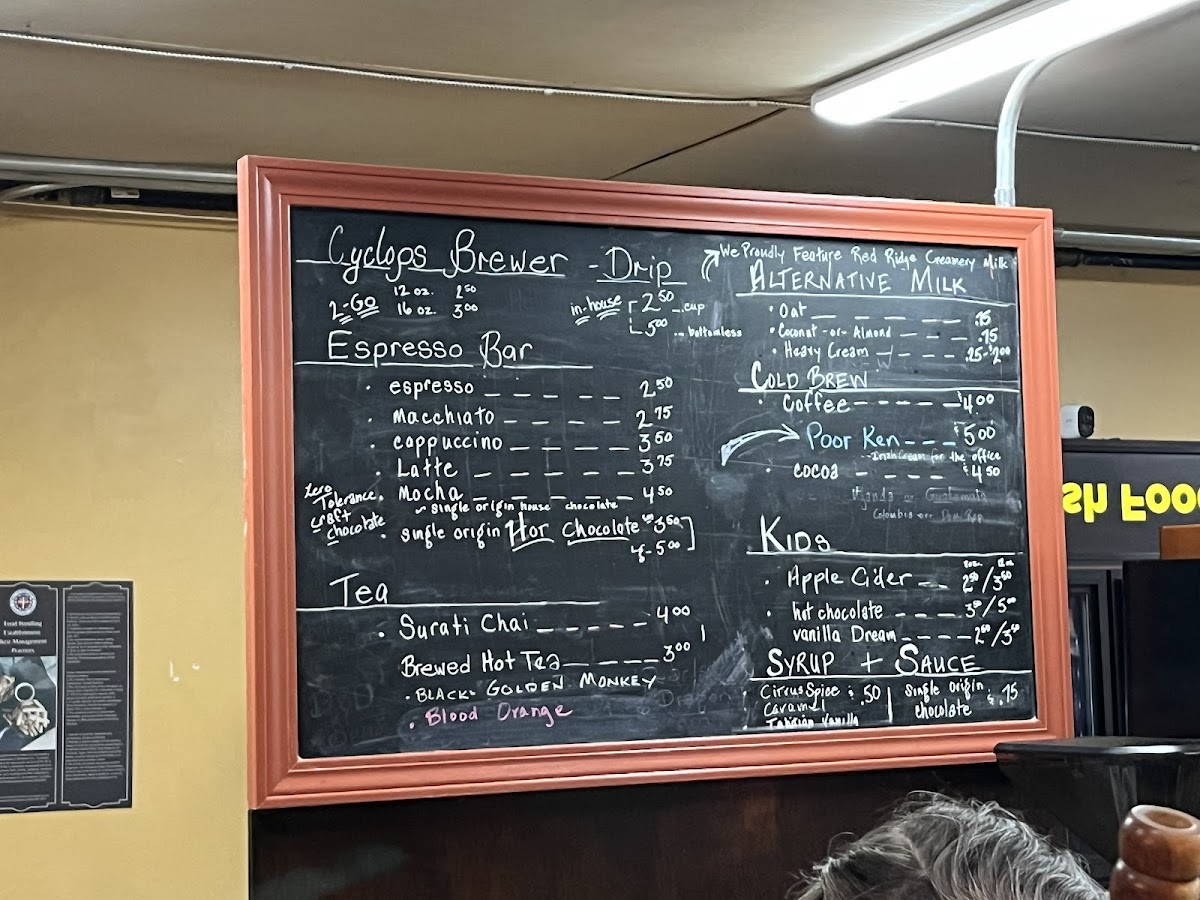 Cyclops Brewer - Drip
2-Go 12 oz. 2.50
16 oz. 3.00
in-house 2.50 cup
5.00 bottomless
Espresso Bar
· espresso _ _ _ _ _ 2.50
· Macchiato _ _ _ _ 2.75
· cappuccino _ _ _ _ 3.50
· Latte _ _ _ _ _ 3.75
· Mocha _ _ _ _ _ 4.50
~ single origin house chocolate
Zero Tolerance Craft Chocolate
· single origin Hot Chocolate 3.50
5.00
Tea
· Surati Chai _ _ _ _ _ 4.00
Brewed Hot Tea _ _ _ _ 3.00
· BLACK - GOLDEN MONKEY
· Blood Orange
We Proudly Feature Red Ridge Creamery Milk
ALTERNATIVE MILK
· Oat _ _ _ _ _ .75
· Coconut -or- Almond _ _ _ _ .75
· Heavy Cream _ _ _ _ .25-$2.00
COLD BREW
· Coffee _ _ _ _ _ $4.00
Poor Ken _ _ _ $5.00
--Irish Cream for the office
· cocoa _ _ _ _ $4.50
Uganda or Guatemala
KIDS
· Apple Cider _ _ 2.50/3.50
· hot chocolate _ _ _ _ 3.50/5.00
vanilla Dream _ _ _ _ 2.50/3.50
SYRUP + SAUCE
· Citrus Spice
Caramel .50
Tahitian Vanilla
Single origin
chocolate .75
sh Foo
Food Handling
Establishment